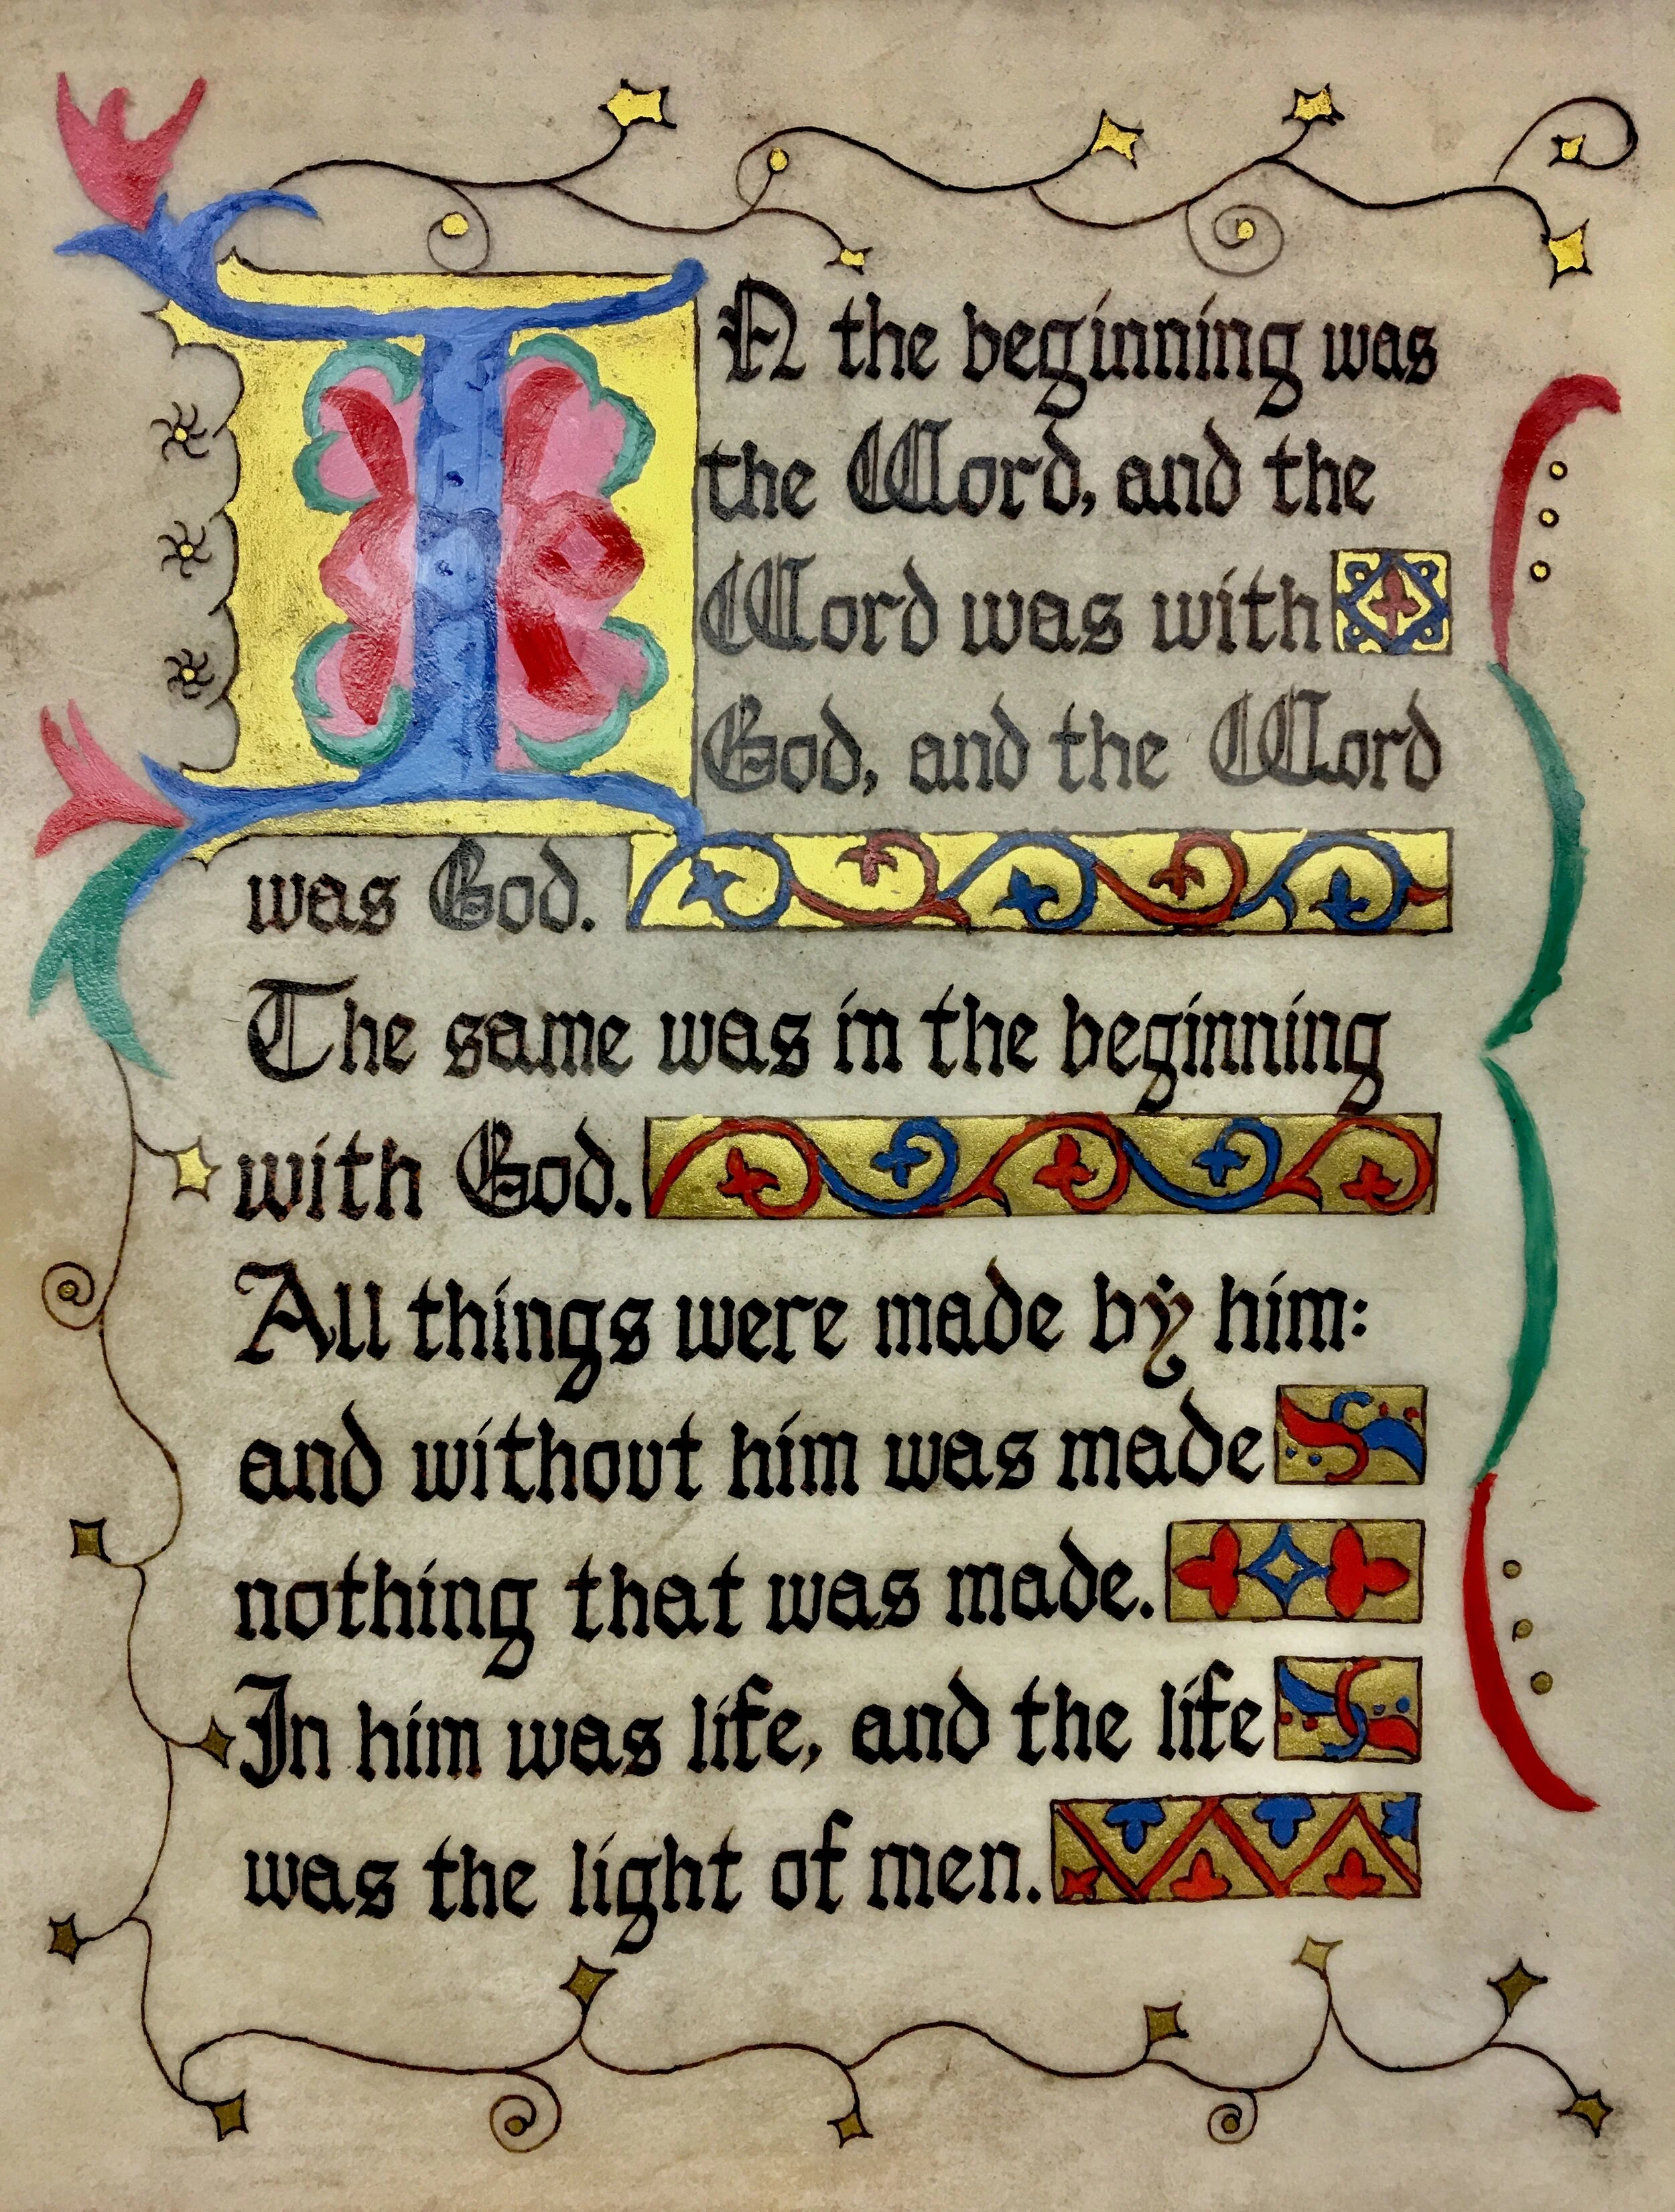 IN the beginning was
the Word, and the
Word was with
God, and the Word
was God.
The same was in the beginning
with God.
All things were made by him:
and without him was made
nothing that was made.
In him was life, and the life
was the light of men.